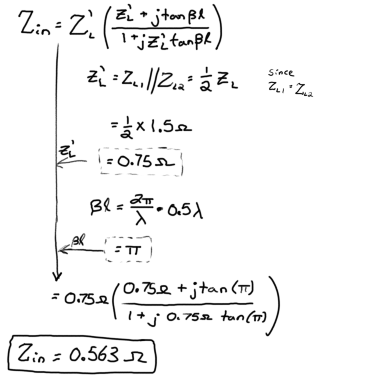 Zin = Z'L ( (Z'L + j tan βl) / (1 + j Z'L tan βl) )
Z'L = ZL1 // ZL2 = 1/2 ZL since ZL1 = ZL2
= 1/2 × 1.5 Ω
Z'L = 0.75 Ω
βl = 2π/λ • 0.5λ
βl = π
= 0.75Ω ( (0.75Ω + j tan(π)) / (1 + j 0.75Ω tan(π)) )
Zin = 0.563 Ω